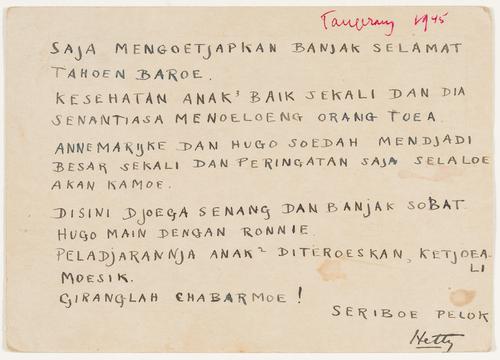 Tangerang 1945
SAJA MENGOETJAPKAN BANJAK SELAMAT
TAHOEN BAROE.
KESEHATAN ANAK³ BAIK SEKALI DAN DIA
SENANTIASA MENOELOENG ORANG TOEA.
ANNEMARIJKE DAN HUGO SOEDAH MENDJADI
BESAR SEKALI DAN PERINGATAN SAJA SELALOE
AKAN KAMOE.
DISINI DJOEGA SENANG DAN BANJAK SOBAT.
HUGO MAIN DENGAN RONNIE.
PELADJARANNJA ANAK² DITEROESKAN, KETJOEA-
LI
MOESIK.
GIRANGLAH CHABARMOE!
SERIBOE PELOK
Hetty